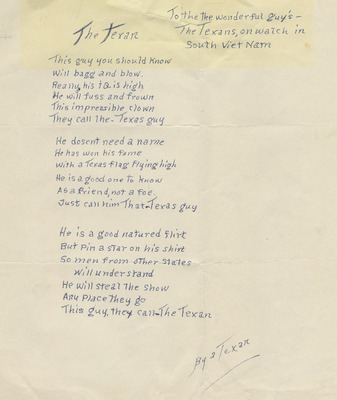 The Texan
To the the wonderful guy's-
The Texans, on watch in
South Viet Nam
This guy you should know
Will bagg and blow.
Really, his IQ is high
He will fuss and frown
This impressible clown
They call the-Texas guy
He dosent need a name
He has won his fame
with a Texas flag flying high
He is a good one to know
As a friend, not a foe.
Just call him That-Texas guy
He is a good natured flirt
But pin a star on his shirt
So men from other States
Will understand
He will steal the show
Any place They go
This guy, they call-The Texan
By a Texan